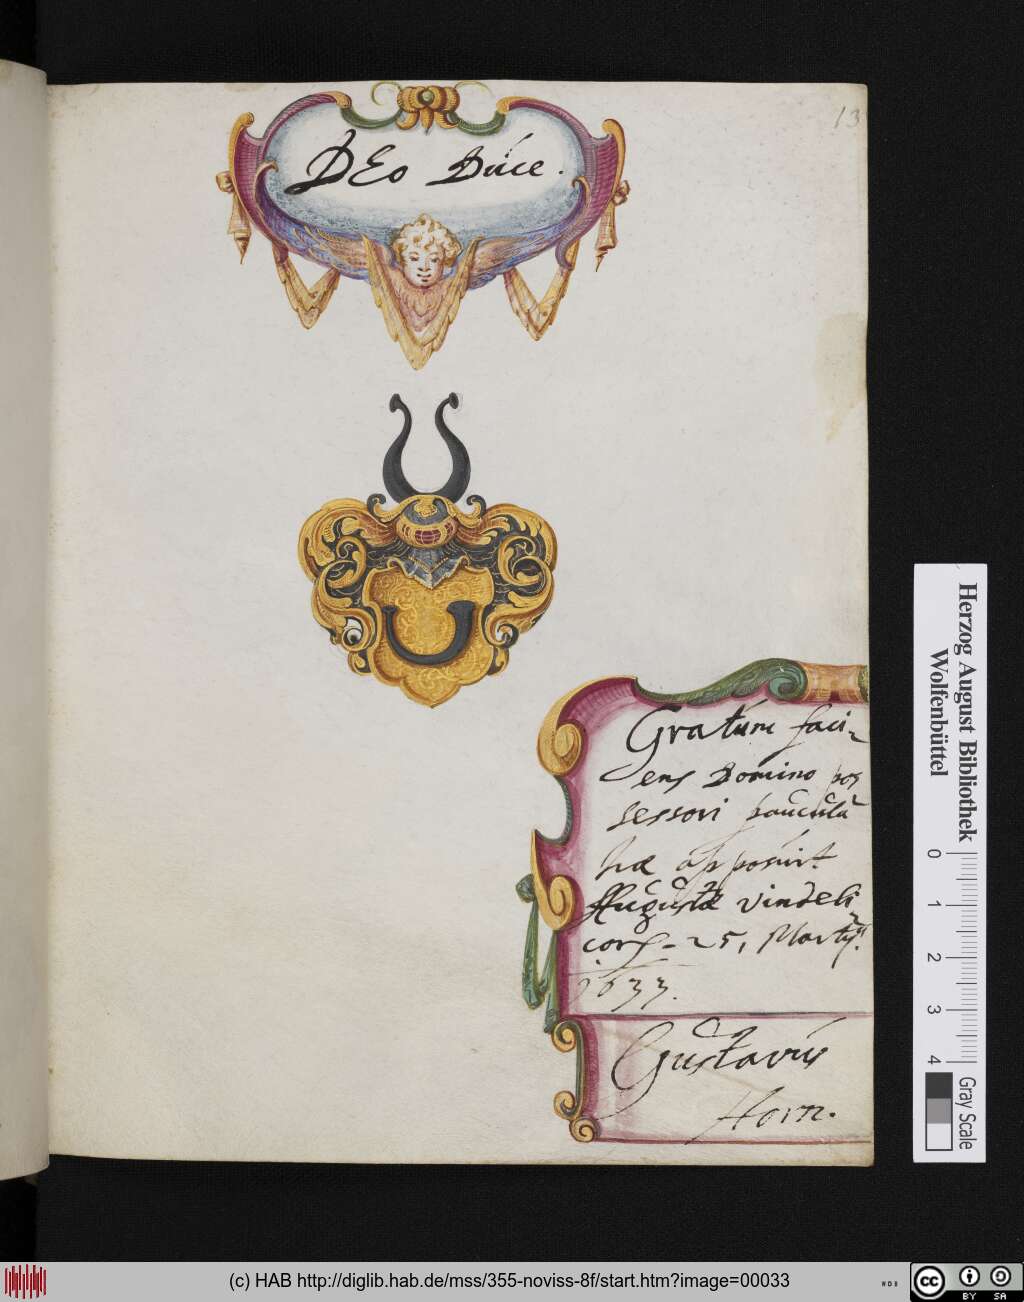 13
DEo Dúce.
Gratúm faci-
ens Domino pos
sessori paúcúla
hæ apposúit
Aúgústæ vindeli
cors - 25, Martÿ.
1633.
Gústavús
Horn.
Herzog August Bibliothek
Wolfenbüttel
0 1 2 3 4
Gray Scale
(c) HAB http://diglib.hab.de/mss/355-noviss-8f/start.htm?image=00033
WDB
cc BY SA